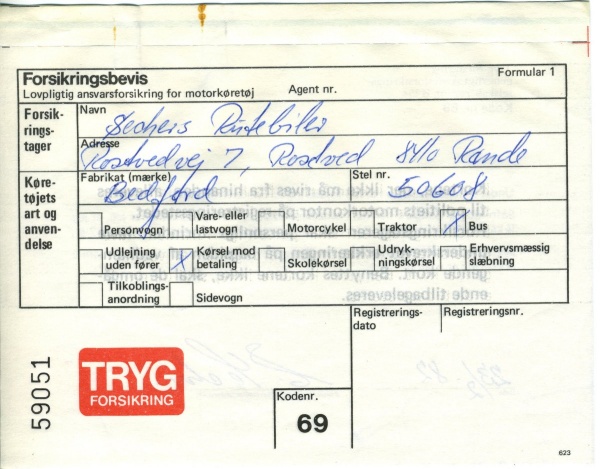 Forsikringsbevis
Formular 1
Lovpligtig ansvarsforsikring for motorkøretøj
Agent nr.
Forsik-
rings-
tager
Navn
Sechers Rutebiler
Adresse
Rostvedvej 7, Rostved 8410 Rønde
Køre-
tøjets
art og
anven-
delse
Fabrikat (mærke)
Bedford
Stel nr.
50608
Personvogn
Vare- eller
lastvogn
Motorcykel
Traktor
X
Bus
Udlejning
uden fører
X
Kørsel mod
betaling
Skolekørsel
Udryk-
ningskørsel
Erhvervsmæssig
slæbning
Tilkoblings-
anordning
Sidevogn
Registrerings-
dato
Registreringsnr.
59051
TRYG
FORSIKRING
Kodenr.
69
623